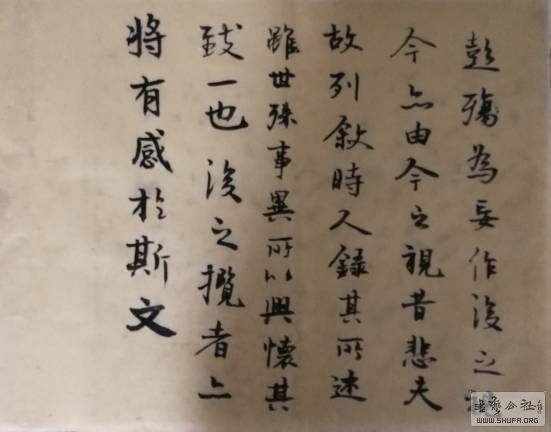 彭殤為妄作後之
今亦由今之視昔悲夫
故列敘時人錄其所述
雖世殊事異所以興懷其
致一也後之攬者亦
將有感於斯文
公社
WWW.SHUFA.ORG